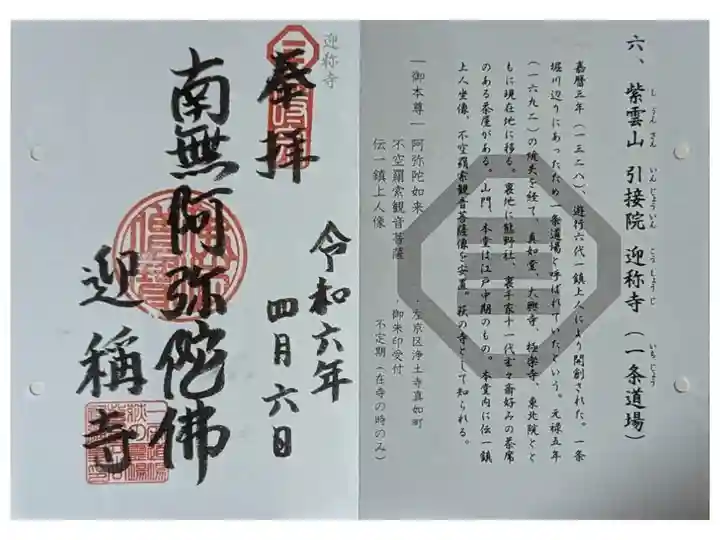 六、紫雲山 引接院 迎称寺（一条道場）
しうんざん いんじょういん こうしょうじ いちじょう
嘉暦三年（一三二八）、遊行六代一鎮上人により開創された。一条
堀川辺りにあったため一条道場と呼ばれていたという。元禄五年
（一六九二）の焼失を経て、真如堂、大興寺、極楽寺、東北院とと
もに現在地に移る。裏地に熊野社、裏千家十一代玄々斎好みの茶席
のある茶屋がある。山門、本堂は江戸中期のもの。本堂内に伝一鎮
上人坐像、不空羅索観音菩薩像を安置。萩の寺として知られる。
―御本尊― 阿弥陀如来
不空羅索観音菩薩
伝一鎮上人像
・左京区浄土寺真如町
・御朱印受付
不定期（在寺の時のみ）
迎称寺
奉拝
令和六年
四月六日
南無阿弥陀佛
迎稱寺